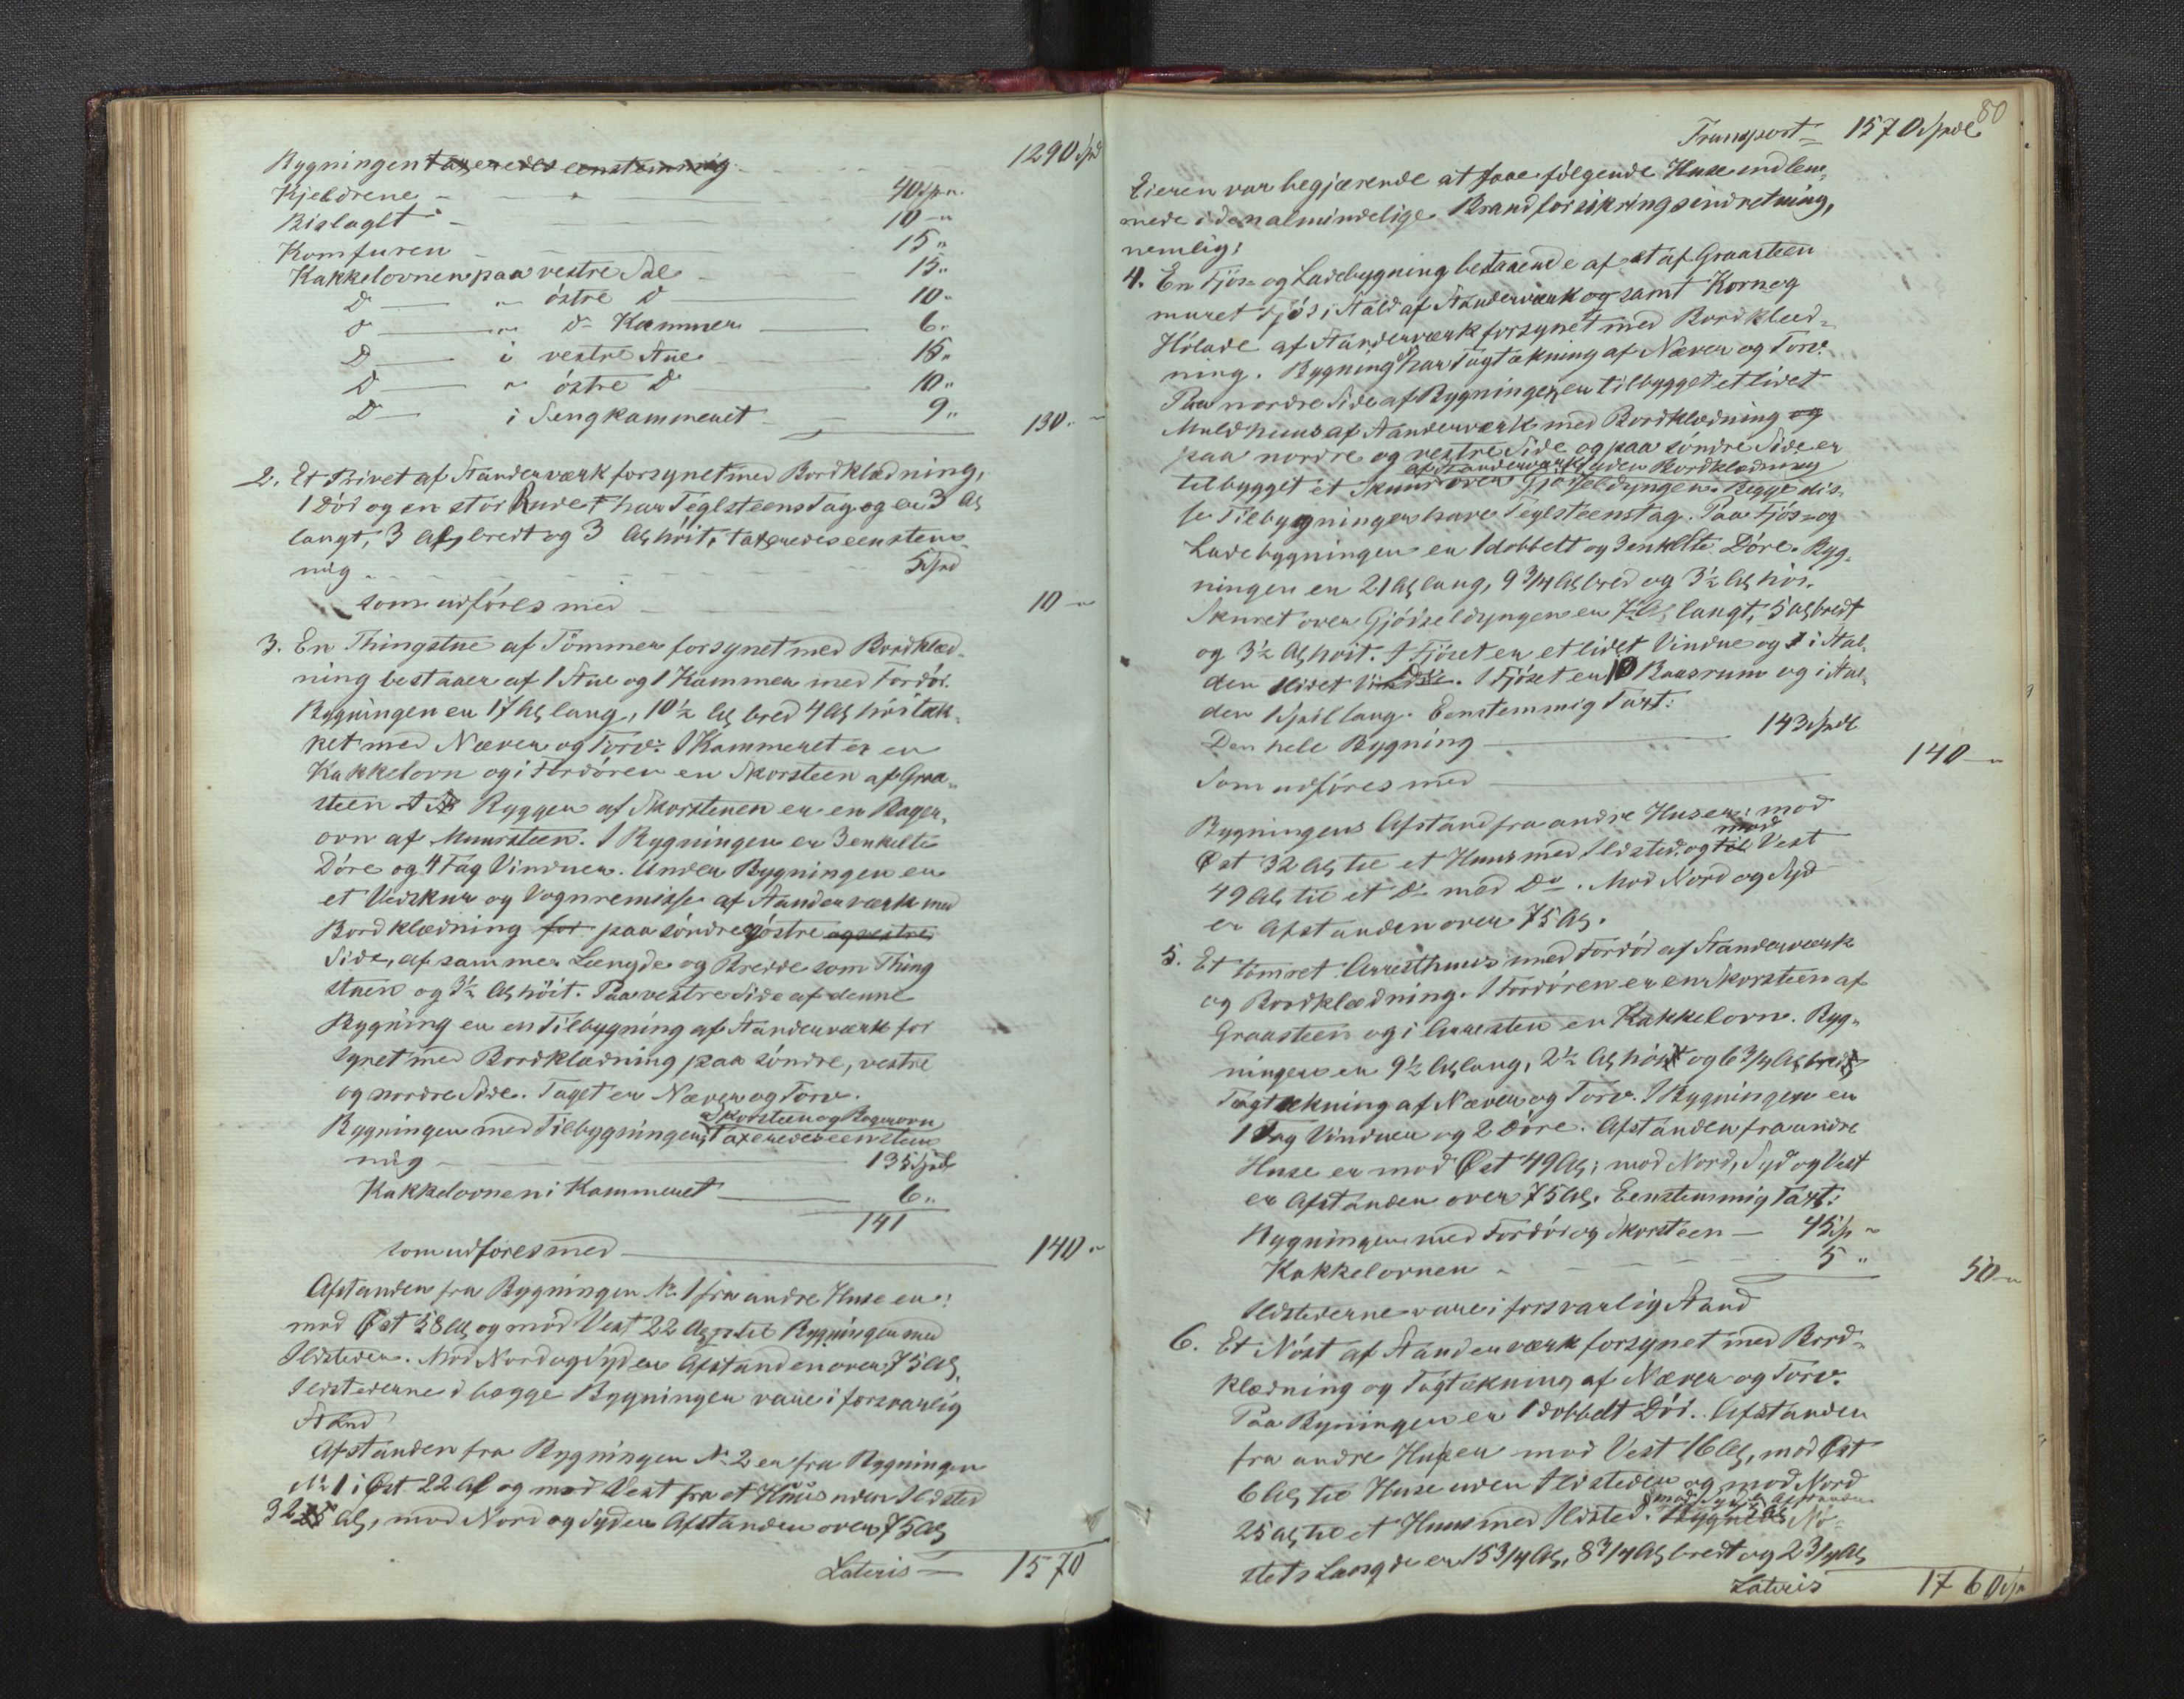 Bygningen taxeredes eenstemmig 1290 Spd
Kjeldrene 40 Spd.
Bislaget 10 "
Komfuren 15 "
Kakkelovnen paa vestre Sal 15 "
D — " östre D 10 "
D — " D Kammer 6 "
D — i vestre Stue 18 "
D — " östre D 10 "
D — i Sengkammeret 9 " 130 "
2. Et Privet af Standerværk forsynet med Bordklædning,
1 Dör og en stor Rude har Teglsteens Tag og er 3 Al
langt, 3 Al bredt og 3 Al höit, taxeredes eenstem-
mig 5 Spd
som udföres med 10 "
3. En Thingstue af Tömmer forsynet med Bordklæd-
ning bestaaer af 1 Stue og 1 Kammer med Fordör.
Bygningen er 17 Al lang, 10½ Al bred 4 Al höi tæk-
ket med Næver og Torv. I Kammeret er en
Kakkelovn og i Fordören en Skorsteen af Graa-
steen. I Ryggen af Skorstenen er en Bager-
ovn af Muursteen. I Bygningen er 3 enkelte
Döre og 4 Fag Vinduer. Under Bygningen er
et Vedskur og Vognremisse af Standerværk med
Bordklædning for paa söndre og östre og vestre
Side, af samme Længde og Bredde som Thing
stuen og 3½ Al höit. Paa vestre Side af denne
Bygning er en Tilbygning af Standerværk for
synet med Bordklædning paa söndre, vestre
og nordre Side. Taget er Næver og Torv.
Skorsteen og Bagerovn
Bygningen med Tilbygningen, Taxeredes eenstem
mig 135 Spd
Kakkelovnen i Kammeret 6 "
141
som udföres med 140 "
Afstanden fra Bygningen No 1 fra andre Huse er:
mod Öst 58 Al og mod Vest 22 Al til Bygningen med
Ildsteder. Mod Nord og Syd er Afstanden over 75 Al,
Ildstederne i begge Bygninger vare i forsvarlig
Stand
Afstanden fra Bygningen No 2 er fra Bygningen
No 1 i Öst 22 Al og mod Vest fra et Huus uden Ildsted
32 Al, mod Nord og Syd er Afstanden over 75 Al
Lateris — 1570
80
Transport 1570 Spd
Eieren var begjærende at faae fölgende Huse indlem-
mede i den almindelige Brandforsikringsindretning,
nemlig:
4. En Fjös- og Ladebygning bestaaende af et af Graasteen
muret Fjös, i Stald af Standerværk og samt Korn og
Hölade af Standerværk forsynet med Bordklæd-
ning. Bygningen har Tagtækning af Næver og Torv.
Paa nordre Side af Bygningen, er tilbygget et lidet
Muldhuus af Standerværk med Bordklædning og
paa nordre og vestre Side og paa söndre Side er
af Standerværk uden Bordklædning
tilbygget et Skuur over Gjödseldyngen. Begge dis-
se Tilbygninger have Teglsteenstag. Paa Fjös- og
Ladebygningen er 1 dobbelt og 3 enkelte Döre. Byg-
ningen er 21 Al lang, 9¾ Al bred og 3½ Al höi.
Skuret over Gjödseldyngen er 7½ Al langt, 5 Al bredt
og 3½ Al höit. I Fjöset er et lidet Vindue og i Stal-
den 1 lidet Do. I Fjöset er 10 Baasrum og i Stal-
den 1 Spill laug. Eenstemmig Taxt:
Den hele Bygning 143 Spd
Som udföres med 140 "
Bygningens Afstand fra andre Huse er: mod
Öst 32 Al til et Huus med Ildsted, og til mod Vest
49 Al til et Do med Do. Mod Nord og Syd
er Afstanden over 75 Al.
5. Et tömret Arresthuus med Fordör af Standerværk
og Bordklædning. I Fordören er en Skorsteen af
Graasteen og i Arresten en Kakkelovn. Byg-
ningen er 9½ Al lang, 2½ Al höi og 6¾ Al bred,
Tagtækning af Næver og Torv. I Bygningen er
1 Fag Vinduer og 2 Döre. Afstanden fra andre
Huse er mod Öst 49 Al; mod Nord, Syd og Vest
er Afstanden over 75 Al. Eenstemmig Taxt:
Bygningen med Fordör og Skorsteen — 45 Sp "
Kakkelovnen 5 " 50 "
Ildstederne vare i forsvarlig Stand
6. Et Nöst af Standerværk forsynet med Bord-
klædning og Tagtækning af Næver og Torv.
Paa Bygningen er 1 dobbelt Dör. Afstanden
fra andre Huse er mod Vest 16 Al, mod Öst
6 Al til Huse uden Ildsteder og mod Nord
mod Syd er Afstanden
25 Al til et Huus med Ildsted. Nö-
stets Længde er 15¾ Al, 8¾ Al bredt og 2¾ Al
Lateris 1760 Sp